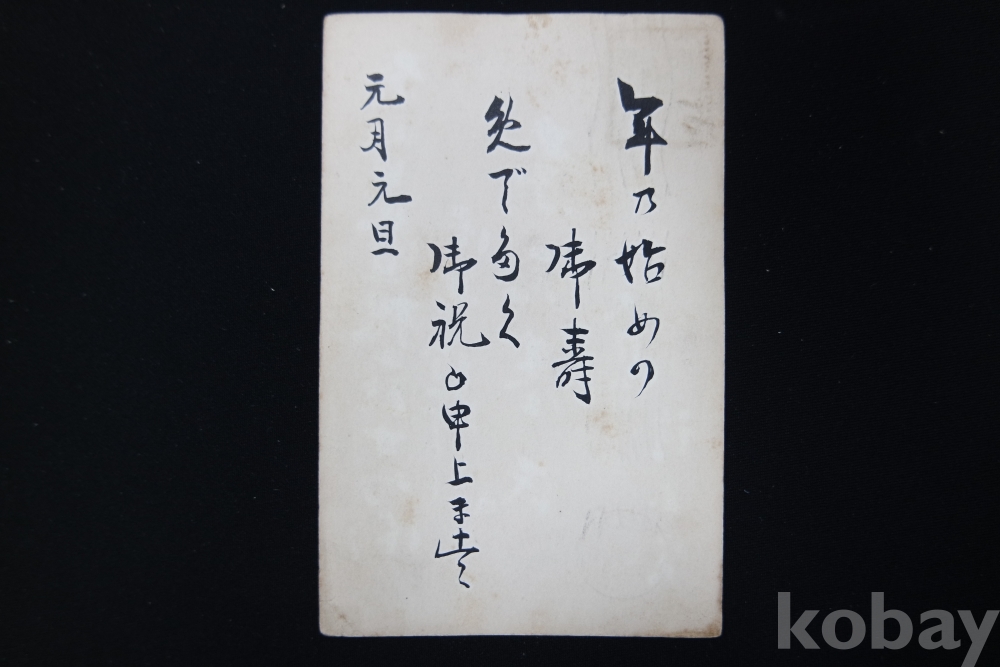 年乃始めの
御寿
免で多く
御祝申上ます
元月元旦
kobay